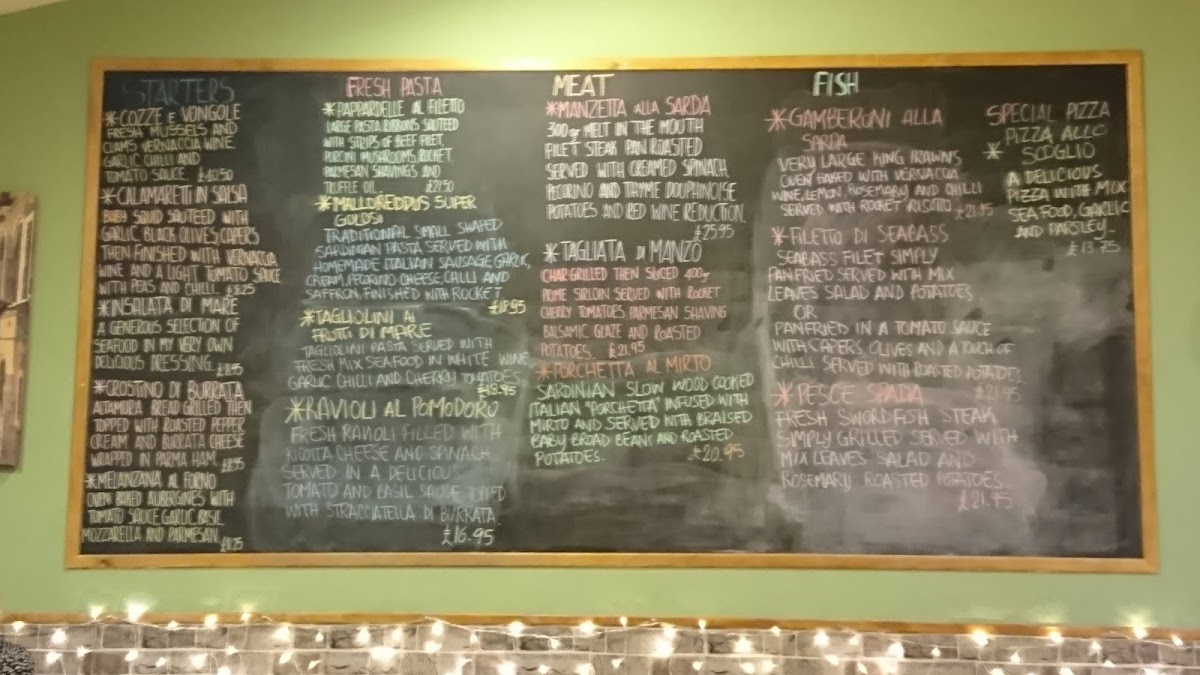 STARTERS
*COZZE E VONGOLE
FRESH MUSSELS AND
CLAMS VERNACCIA WINE
GARLIC CHILLI AND
TOMATO SAUCE £10.50
*CALAMARETTI IN SALSA
BABY SQUID SAUTEED WITH
GARLIC, BLACK OLIVES, CAPERS
THEN FINISHED WITH VERNACCIA
WINE AND A LIGHT TOMATO SAUCE
WITH PEAS AND CHILLI. £8.25
*INSALATA DI MARE
A GENEROUS SELECTION OF
SEAFOOD IN MY VERY OWN
DELICIOUS DRESSING. £8.95
*CROSTINO DI BURRATA
ALTAMURA BREAD GRILLED THEN
TOPPED WITH ROASTED PEPPER
CREAM AND BURRATA CHEESE
WRAPPED IN PARMA HAM. £8.95
*MELANZANA AL FORNO
OVEN BAKED AUBERGINES WITH
TOMATO SAUCE, GARLIC, BASIL
MOZZARELLA AND PARMESAN. £8.25
FRESH PASTA
*PAPPARDELLE AL FILETTO
LARGE PASTA RIBBONS SAUTEED
WITH STRIPS OF BEEF FILET,
PORCINI MUSHROOMS, ROCKET,
PARMESAN SHAVINGS AND
TRUFFLE OIL. £21.50
*MALLOREDDUS SUPER
GOLOSI
TRADITIONAL SMALL SHAPED
SARDINIAN PASTA SERVED WITH
HOMEMADE ITALIAN SAUSAGE GARLIC,
CREAM, PECORINO CHEESE, CHILLI AND
SAFFRON, FINISHED WITH ROCKET
£18.95
*TAGLIOLINI AI
FRUTTI DI MARE
TAGLIOLINI PASTA SERVED WITH
FRESH MIX SEAFOOD IN WHITE WINE
GARLIC CHILLI AND CHERRY TOMATOES.
£18.95
*RAVIOLI AL POMODORO
FRESH RAVIOLI FILLED WITH
RICOTTA CHEESE AND SPINACH
SERVED IN A DELICIOUS
TOMATO AND BASIL SAUCE TOPPED
WITH STRACCIATELLA DI BURRATA.
£16.95
MEAT
*MANZETTA ALLA SARDA
300gr MELT IN THE MOUTH
FILET STEAK PAN ROASTED
SERVED WITH CREAMED SPINACH
PECORINO AND THYME DOUPHINOISE
POTATOES AND RED WINE REDUCTION.
£25.95
*TAGLIATA DI MANZO
CHARGRILLED THEN SLICED 400gr
PRIME SIRLOIN SERVED WITH ROCKET
CHERRY TOMATOES, PARMESAN SHAVING
BALSAMIC GLAZE AND ROASTED
POTATOES. £21.95
*PORCHETTA AL MIRTO
SARDINIAN SLOW WOOD COOKED
ITALIAN "PORCHETTA" INFUSED WITH
MIRTO AND SERVED WITH BRAISED
BABY BROAD BEANS AND ROASTED
POTATOES. £20.95
FISH
*GAMBERONI ALLA
SARDA
VERY LARGE KING PRAWNS
OVEN BAKED WITH VERNACCIA
WINE, LEMON, ROSEMARY AND CHILLI
SERVED WITH ROCKET RISOTTO. £21.95
*FILETTO DI SEABASS
SEABASS FILET SIMPLY
PANFRIED SERVED WITH MIX
LEAVES SALAD AND POTATOES
OR
PANFRIED IN A TOMATO SAUCE
WITH CAPERS, OLIVES AND A TOUCH OF
CHILLI SERVED WITH ROASTED POTATOES.
£21.95
*PESCE SPADA
FRESH SWORDFISH STEAK
SIMPLY GRILLED SERVED WITH
MIX LEAVES SALAD AND
ROSEMARY ROASTED POTATOES.
£21.95
SPECIAL PIZZA
PIZZA ALLO
* SCOGLIO
A DELICIOUS
PIZZA WITH MIX
SEAFOOD, GARLIC
AND PARSLEY.
£13.75